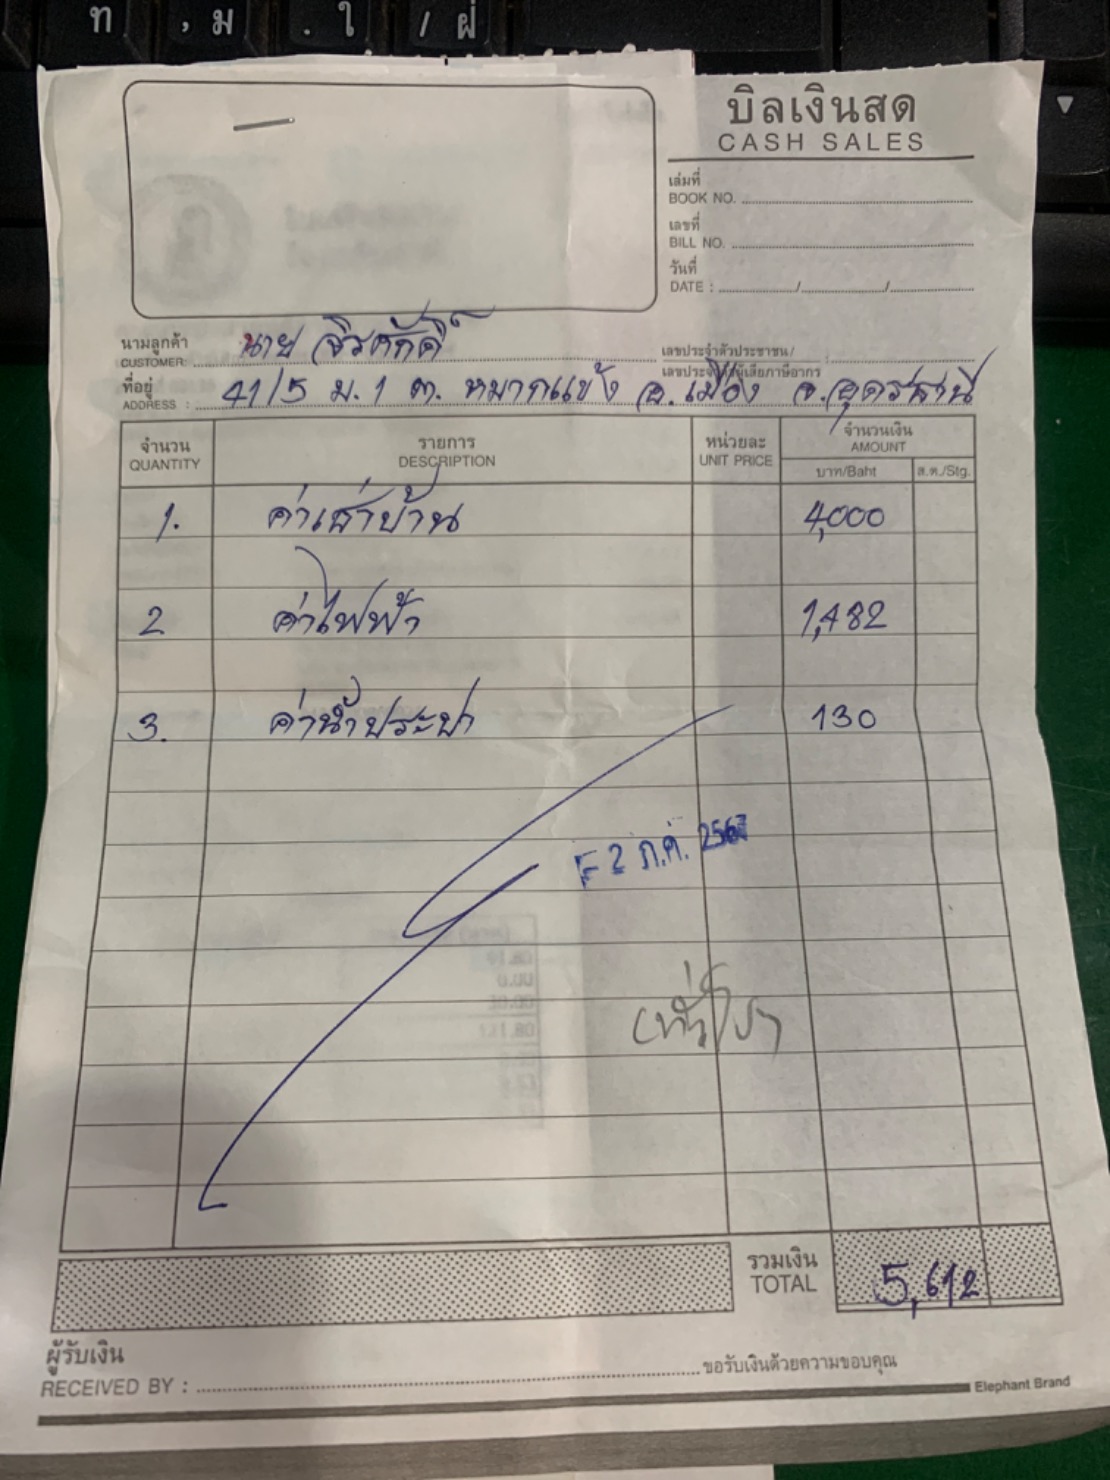 ท , ม . ใ / ฝ
บิลเงินสด
CASH SALES
เล่มที่
BOOK NO.
เลขที่
BILL NO.
วันที่
DATE : / /
นามลูกค้า นาย จิรศักดิ์ เลขประจำตัวประชาชน/
CUSTOMER: เลขประจำตัวผู้เสียภาษีอากร
ที่อยู่ 41/5 ม.1 ต. หมากแข้ง อ.เมือง จ.อุดรธานี
ADDRESS :
จำนวน รายการ หน่วยละ จำนวนเงิน
QUANTITY DESCRIPTION UNIT PRICE AMOUNT
บาท/Baht ส.ต./Stg.
1. ค่าเช่าบ้าน 4,000
2 ค่าไฟฟ้า 1,482
3. ค่าน้ำประปา 130
2 ก.ค. 256
รวมเงิน
TOTAL 5,612
ผู้รับเงิน
RECEIVED BY : ขอรับเงินด้วยความขอบคุณ
Elephant Brand